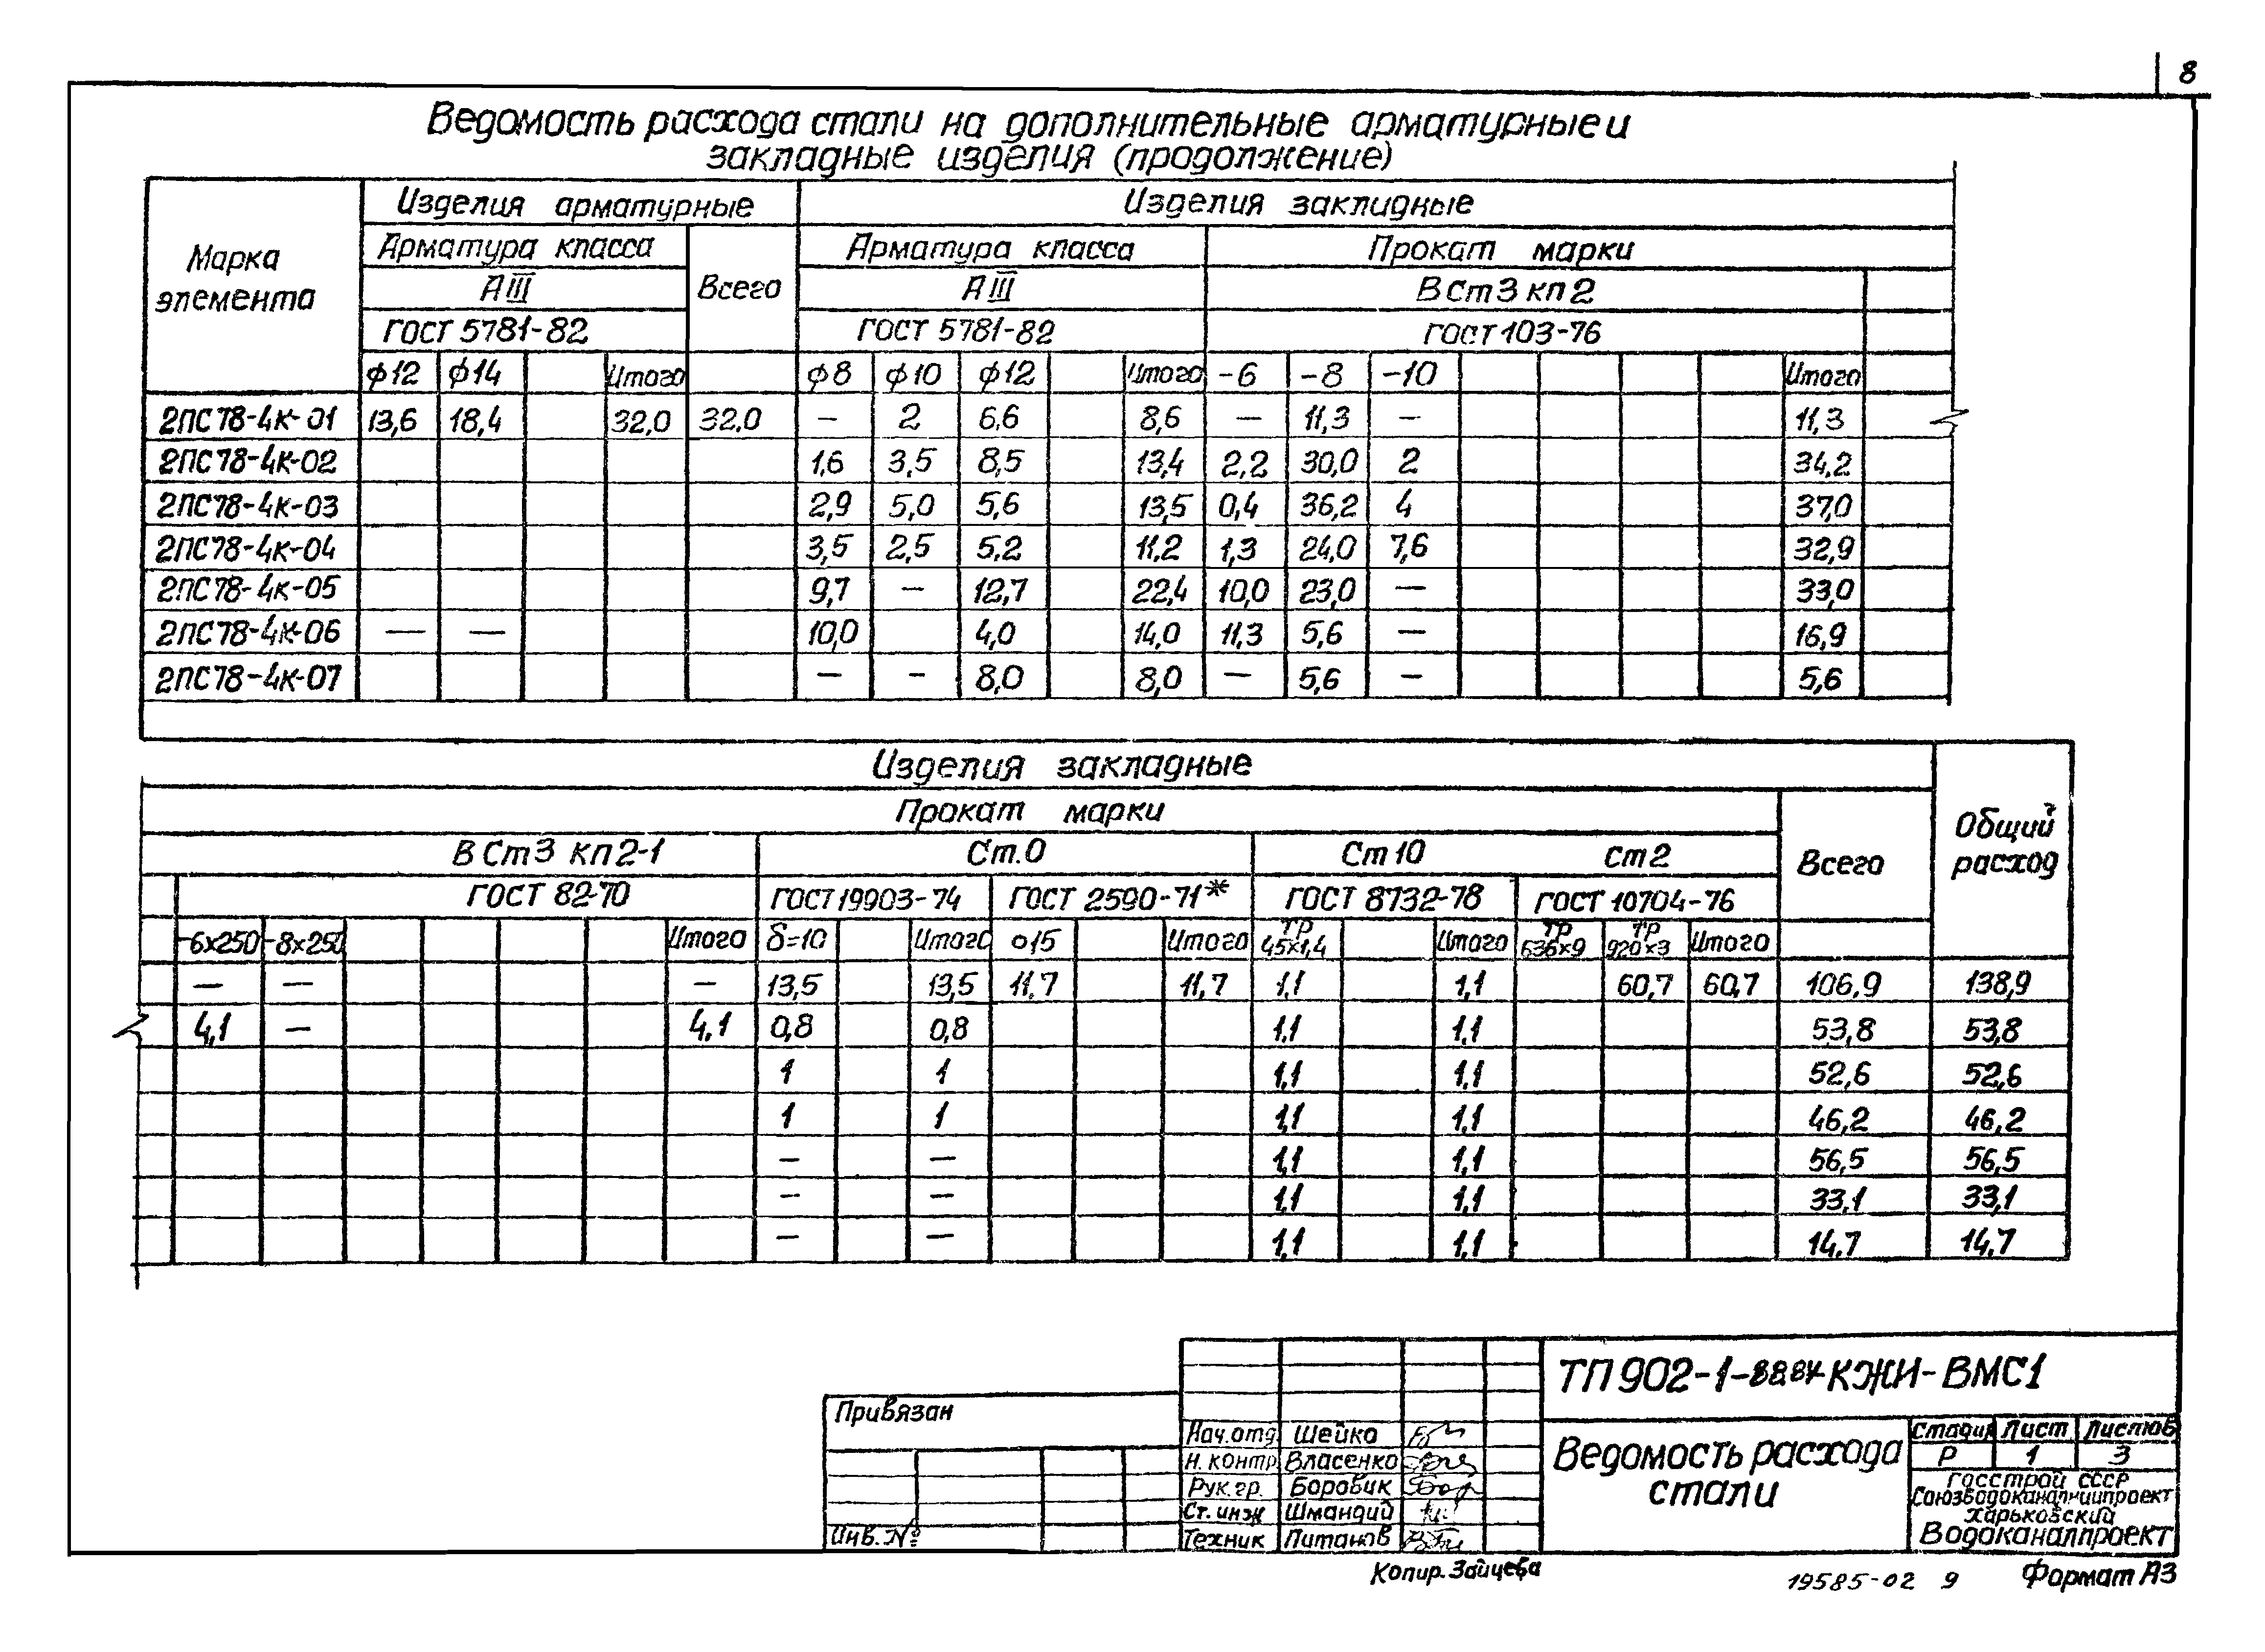 8
Ведомость расхода стали на дополнительные арматурные и
закладные изделия (продолжение)
Марка элемента
Изделия арматурные
Изделия закладные
Арматура класса
Всего
Арматура класса
Прокат марки
АIII
АIII
ВСт3 кп2
ГОСТ 5781-82
ГОСТ 5781-82
ГОСТ 103-76
ф12 ф14 Итого ф8 ф10 ф12 Итого -6 -8 -10 Итого
2ПС78-4к-01 13,6 18,4 32,0 32,0 — 2 6,6 8,6 — 11,3 — 11,3
2ПС78-4к-02 1,6 3,5 8,5 13,4 2,2 30,0 2 34,2
2ПС78-4к-03 2,9 5,0 5,6 13,5 0,4 36,2 4 37,0
2ПС78-4к-04 3,5 2,5 5,2 11,2 1,3 24,0 7,6 32,9
2ПС78-4к-05 9,7 — 12,7 22,4 10,0 23,0 — 33,0
2ПС78-4к-06 — — 10,0 4,0 14,0 11,3 5,6 — 16,9
2ПС78-4к-07 — - 8,0 8,0 — 5,6 - 5,6
Изделия закладные
Общий расход
Прокат марки
Всего
ВСт3 кп2-1 Ст.0 Ст10 Ст2
ГОСТ 82-70 ГОСТ 19903-74 ГОСТ 2590-71* ГОСТ 8732-78 ГОСТ 10704-76
-6х250 -8х250 Итого δ=10 Итого о15 Итого ТР 45х1,4 Итого ТР 636х9 ТР 920х3 Итого
— — — 13,5 13,5 11,7 11,7 1,1 1,1 60,7 60,7 106,9 138,9
4,1 — 4,1 0,8 0,8 1,1 1,1 53,8 53,8
1 1 1,1 1,1 52,6 52,6
1 1 1,1 1,1 46,2 46,2
— — 1,1 1,1 56,5 56,5
— — 1,1 1,1 33,1 33,1
— — 1,1 1,1 14,7 14,7
ТП 902-1- КЖИ-ВМС1
Привязан
Инв. №
Нач.отд. Шейко
Н. контр. Власенко
Рук. гр. Боровик
Ст. инж Шмандий
Техник Литанов
Ведомость расхода
стали
Стадия Лист Листов
Р 1 3
Госстрой СССР
Союзводоканалниипроект
Харьковский
Водоканалпроект
Копир. Зайцева
19585-02 9
Формат А3